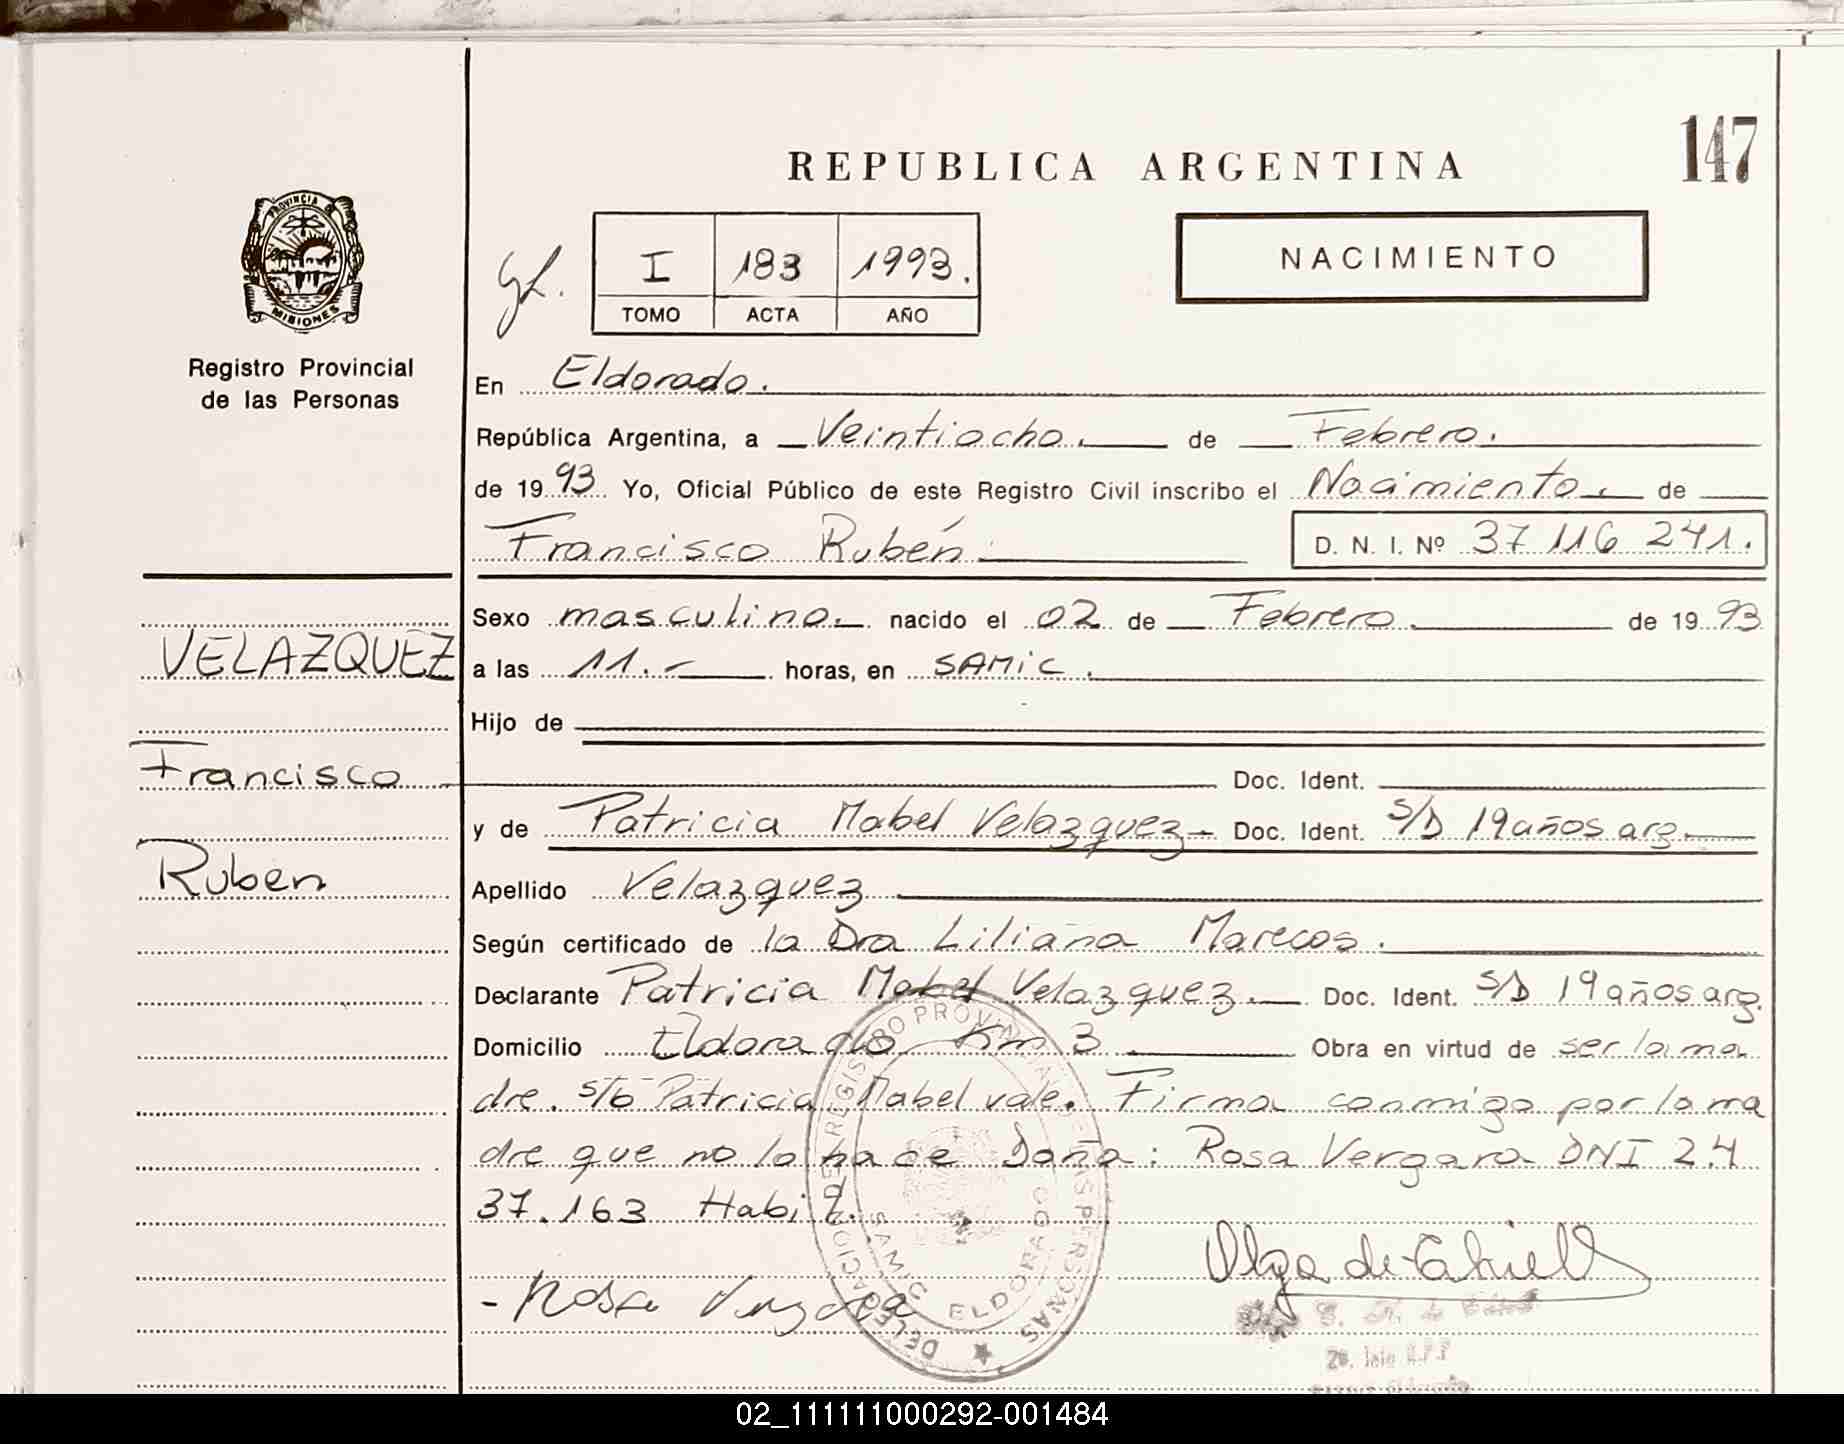 147
REPUBLICA ARGENTINA
PROVINCIA DE
MISIONES
Registro Provincial
de las Personas
I 183 1993.
TOMO ACTA AÑO
NACIMIENTO
En Eldorado.
República Argentina, a Veintiocho. de Febrero.
de 1993. Yo, Oficial Público de este Registro Civil inscribo el Nacimiento. de
Francisco Rubén.
D. N. I. Nº 37 116 241.
VELAZQUEZ
Francisco
Ruben
Sexo masculino. nacido el 02 de Febrero. de 1993
a las 11.- horas, en SAMIC.
Hijo de
Doc. Ident.
y de Patricia Mabel Velazquez- Doc. Ident. S/D 19 años arg.
Apellido Velazquez
Según certificado de la Dra Liliana Marecos.
Declarante Patricia Mabel Velazquez. Doc. Ident. S/D 19 años arg.
Domicilio Eldorado Km 3 Obra en virtud de ser la ma
dre. S/b Patricia Mabel vale. Firma conmigo por la ma
dre que no lo hace Doña: Rosa Vergara DNI 2.4
37.163 Habil.
- Rosa Vergara
DELEGACION DEL REGISTRO PROVINCIAL DE LAS PERSONAS
SAMIC ELDORADO
02_111111000292-001484